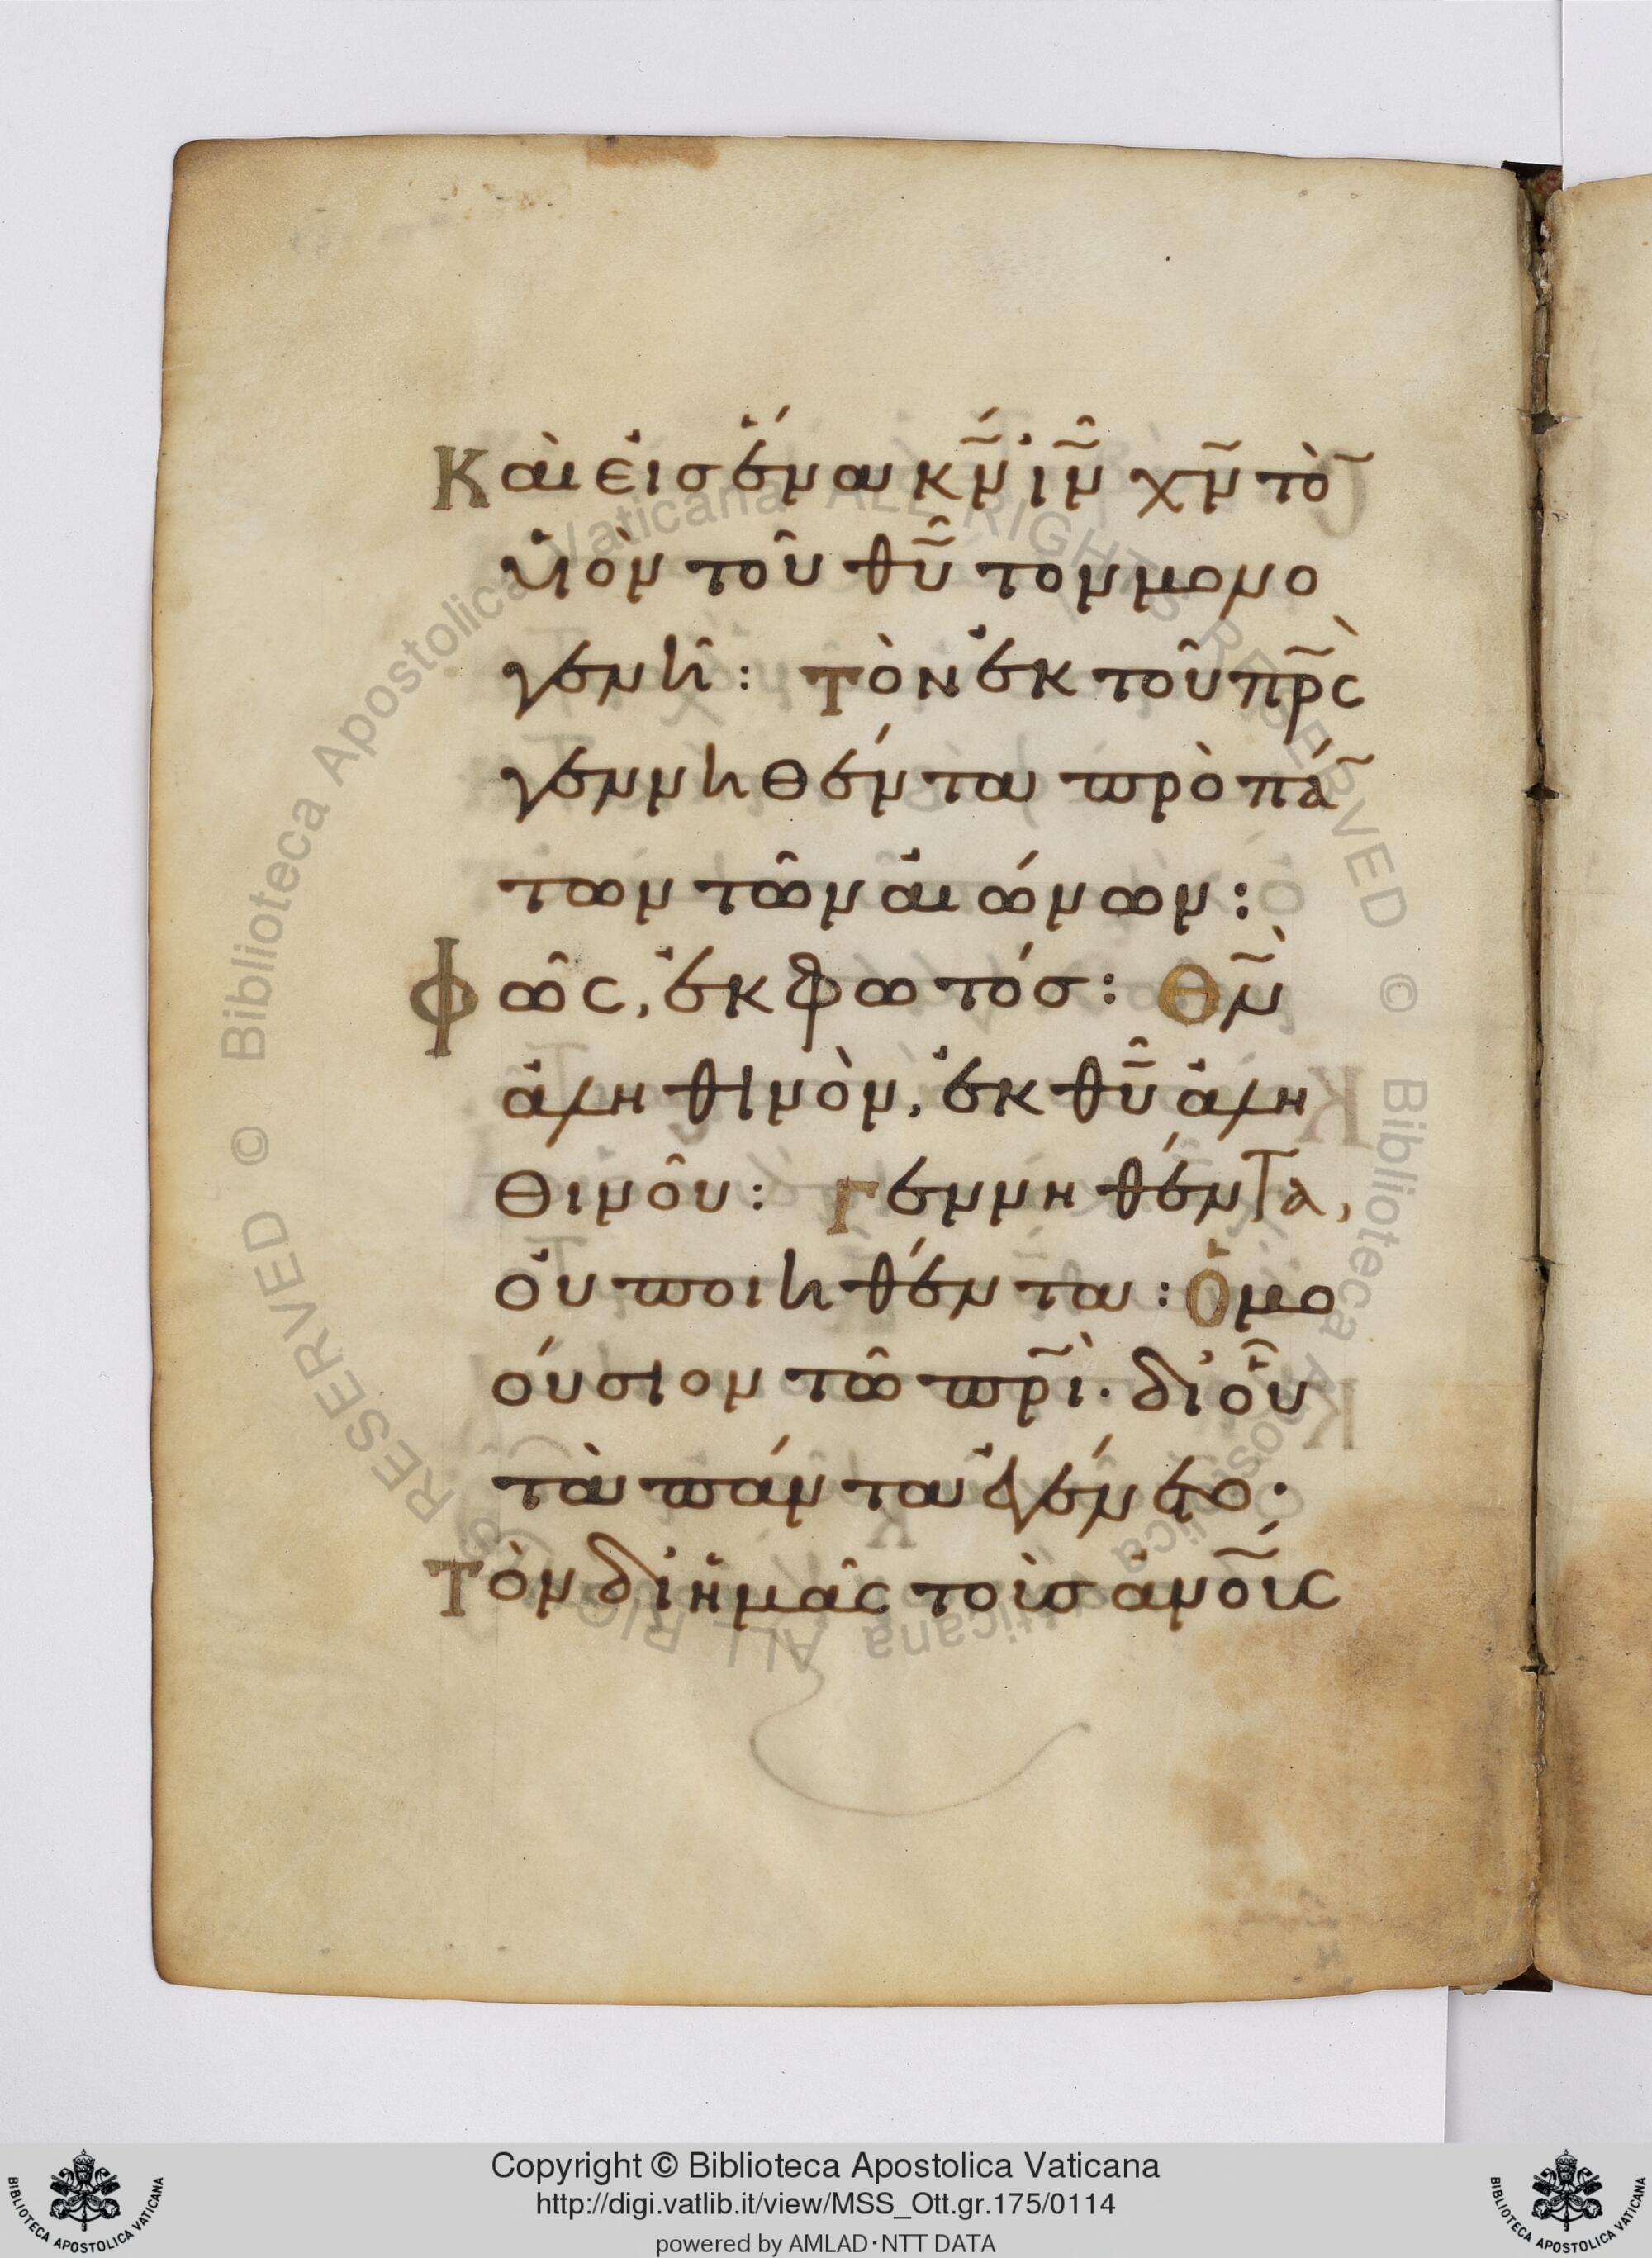 Καὶ εἰς ἕνα κ̅ν̅ ι̅ν̅ χ̅ν̅ τὸ̅
υἱὸν τοῦ θ̅υ̅ τον μονο
γενῆ: τὸν ἐκ τοῦ π̅ρ̅ς
γεννηθέντα πρὸ πά̅
των τῶν αἰώνων:
Φῶς, ἐκ φωτός: Θ̅ν̅
ἀληθινὸν, ἐκ θ̅υ̅ ἀλη
θινοῦ: Γεννηθέντα,
οὐ ποιηθέντα: Ὁμο
ούσιον τῶ π̅ρ̅ι̅· δι' οὗ
τὰ πάντα ἐγένετο·
Τὸν δι' ἡμᾶς τοὺς ἀ̅ν̅ο̅υς
© Biblioteca Apostolica Vaticana ALL RIGHTS RESERVED © Biblioteca Apostolica Vaticana ALL RIGHTS RESERVED
Copyright © Biblioteca Apostolica Vaticana
http://digi.vatlib.it/view/MSS_Ott.gr.175/0114
powered by AMLAD·NTT DATA
BIBLIOTECA APOSTOLICA VATICANA
BIBLIOTECA APOSTOLICA VATICANA